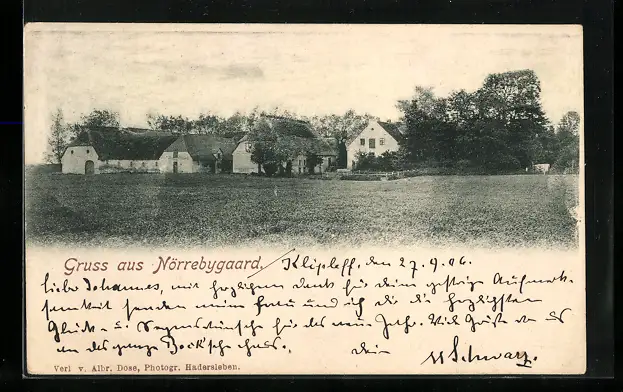 Gruss aus Nörrebygaard.
Klipleff, den 27.9.06.
Liebe Johannes, mit herzlichem Dank für deine gestrige Aufmerk-
samkeit senden meine Frau und ich dir die herzlichsten
Glück- u. Segenswünsche für das neue Jahr. Viele Grüße an
an das ganze Haus.
dein M Schwarz.
Verl v. Albr. Dose, Photogr. Hadersleben.